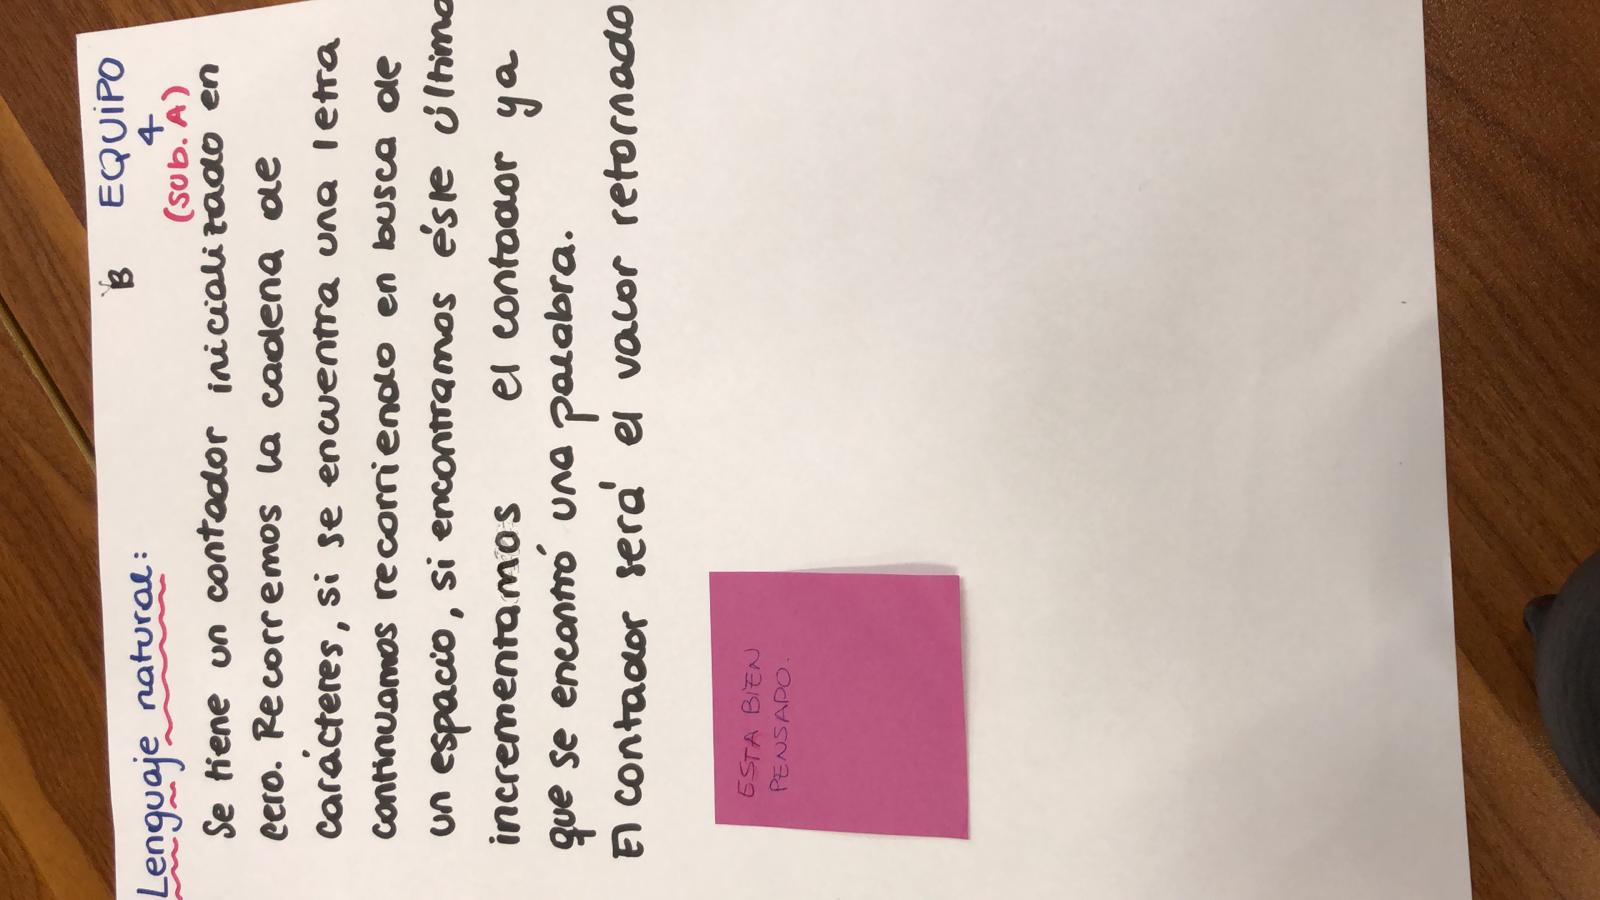 B EQUIPO
4
(sub. A)
Lenguaje natural:
Se tiene un contador inicializado en
cero. Recorremos la cadena de
carácteres, si se encuentra una letra
continuamos recorriendo en busca de
un espacio, si encontramos éste último
incrementamos el contador ya
que se encontró una palabra.
El contador será el valor retornado
ESTA BIEN
PENSADO.